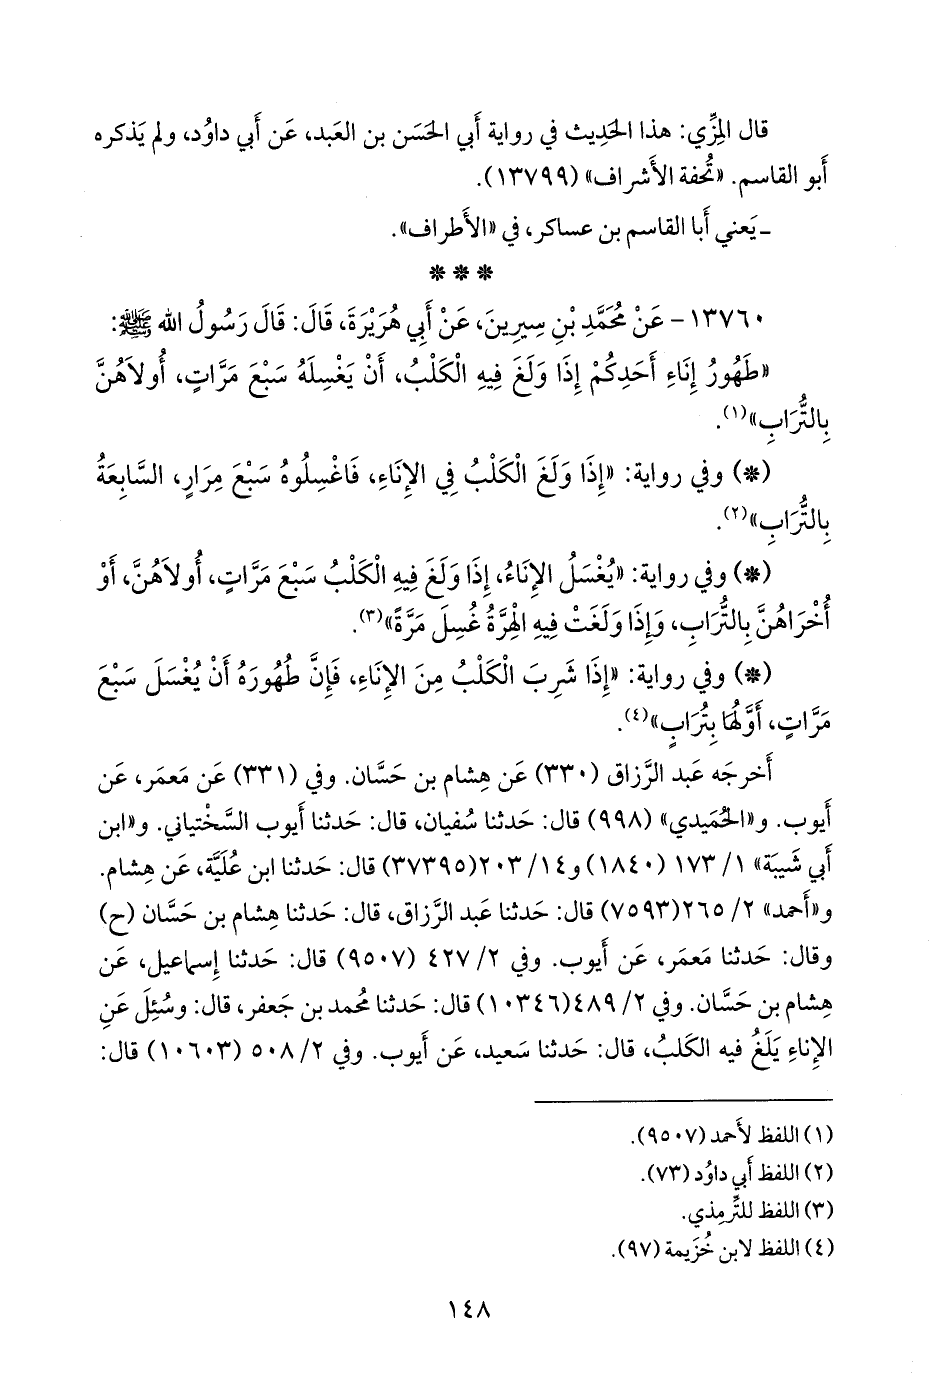 قال المِزِّي: هذا الحَدِيث في رواية أَبي الحَسَن بن العَبد، عَن أَبي داوُد، ولم يَذكره
أَبو القاسم. «تُحفة الأَشراف» (١٣٧٩٩).
ـ يَعني أَبا القاسم بن عساكر، في «الأَطراف».
* * *
١٣٧٦٠ - عَنْ مُحَمَّدِ بْنِ سِيرِينَ، عَنْ أَبِي هُرَيْرَةَ، قَالَ: قَالَ رَسُولُ الله ﷺ:
«طَهُورُ إِنَاءِ أَحَدِكُمْ إِذَا وَلَغَ فِيهِ الْكَلْبُ، أَنْ يَغْسِلَهُ سَبْعَ مَرَّاتٍ، أُولاَهُنَّ
بِالتُّرَابِ»(١).
(*) وفي رواية: «إِذَا وَلَغَ الْكَلْبُ فِي الإِنَاءِ، فَاغْسِلُوهُ سَبْعَ مِرَارٍ، السَّابِعَةُ
بِالتُّرَابِ»(٢).
(*) وفي رواية: «يُغْسَلُ الإِنَاءُ، إِذَا وَلَغَ فِيهِ الْكَلْبُ سَبْعَ مَرَّاتٍ، أُولاَهُنَّ، أَوْ
أُخْرَاهُنَّ بِالتُّرَابِ، وَإِذَا وَلَغَتْ فِيهِ الْهِرَّةُ غُسِلَ مَرَّةً»(٣).
(*) وفي رواية: «إِذَا شَرِبَ الْكَلْبُ مِنَ الإِنَاءِ، فَإِنَّ طُهُورَهُ أَنْ يُغْسَلَ سَبْعَ
مَرَّاتٍ، أَوَّلُهَا بِتُرَابٍ»(٤).
أَخرجَه عَبد الرَّزاق (٣٣٠) عَن هِشام بن حَسَّان. وفي (٣٣١) عَن مَعمَر، عَن
أَيوب. و«الحُمَيدي» (٩٩٨) قال: حَدثنا سُفيان، قال: حَدثنا أَيوب السَّختِياني. و«ابن
أَبي شَيبَة» ١/ ١٧٣ (١٨٤٠) و١٤/ ٢٠٣(٣٧٣٩٥) قال: حَدثنا ابن عُلَيَّة، عَن هِشام.
و«أَحمد» ٢/ ٢٦٥(٧٥٩٣) قال: حَدثنا عَبد الرَّزاق، قال: حَدثنا هِشام بن حَسَّان (ح)
وقال: حَدثنا مَعمَر، عَن أَيوب. وفي ٢/ ٤٢٧ (٩٥٠٧) قال: حَدثنا إِسماعيل، عَن
هِشام بن حَسَّان. وفي ٢/ ٤٨٩(١٠٣٤٦) قال: حَدثنا مُحمد بن جَعفر، قال: وسُئِلَ عَنِ
الإِناءِ يَلَغُ فيه الكَلبُ، قال: حَدثنا سَعيد، عَن أَيوب. وفي ٢/ ٥٠٨ (١٠٦٠٣) قال:
(١) اللفظ لأَحمد (٩٥٠٧).
(٢) اللفظ أَبي داوُد (٧٣).
(٣) اللفظ للتِّرمِذي.
(٤) اللفظ لابن خُزَيمة (٩٧).
١٤٨